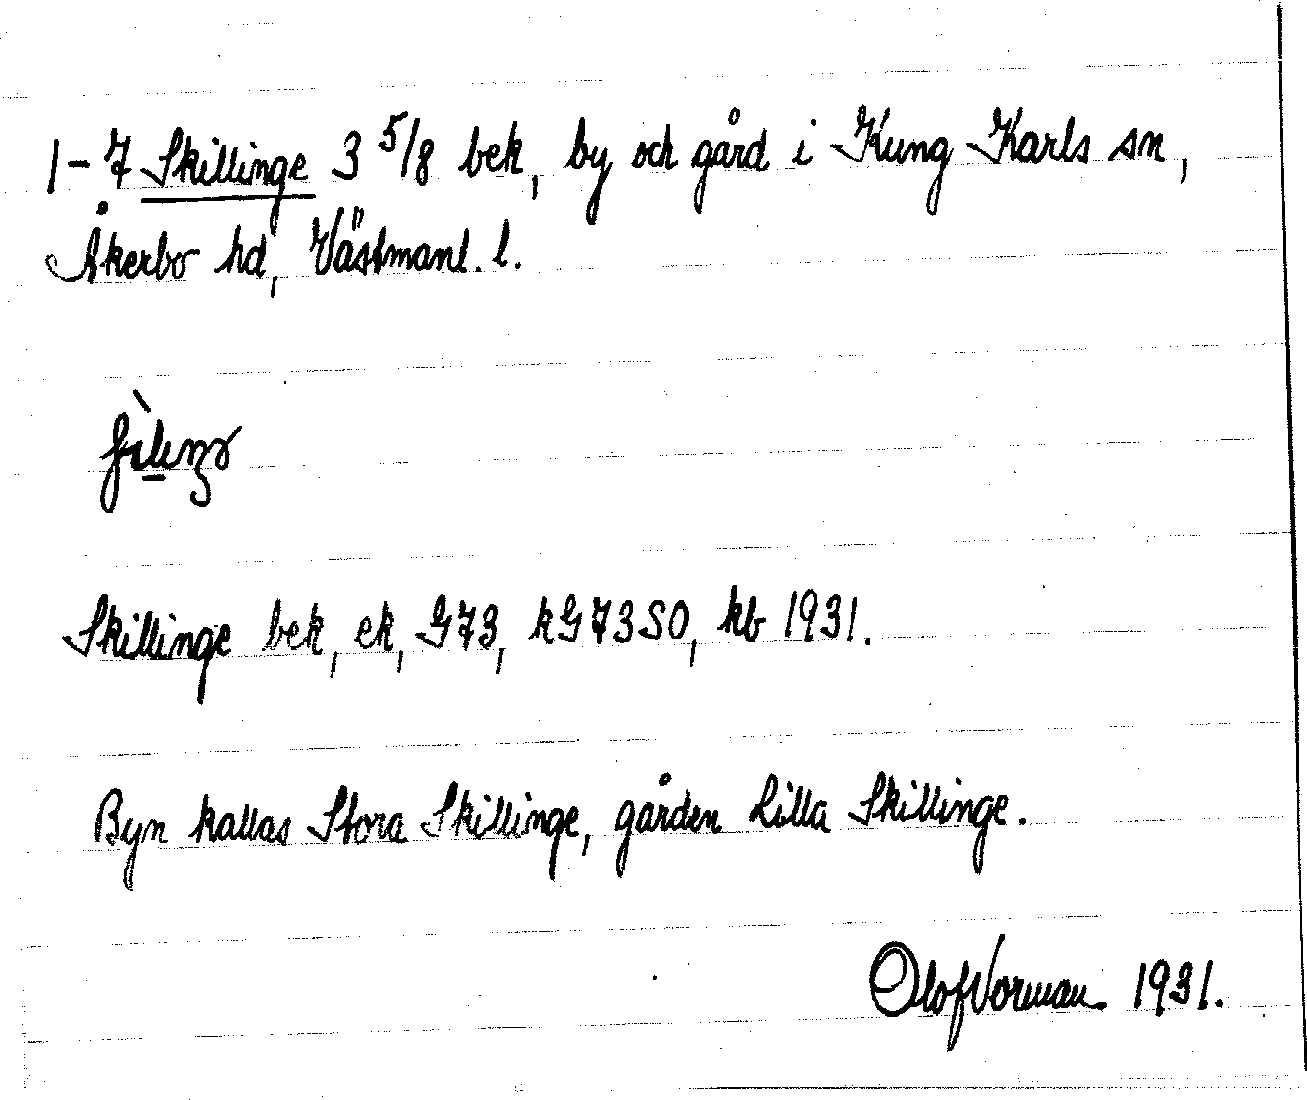 1-7 Skillinge 3 5/8 bek, by och gård i Kung Karls sn,
Åkerbo hd, Västmanl. l.
Skillinge bek, ek, G73, kG73SO, kb 1931.
Byn kallas Stora Skillinge, gården Lilla Skillinge.
Olof Vorman 1931.